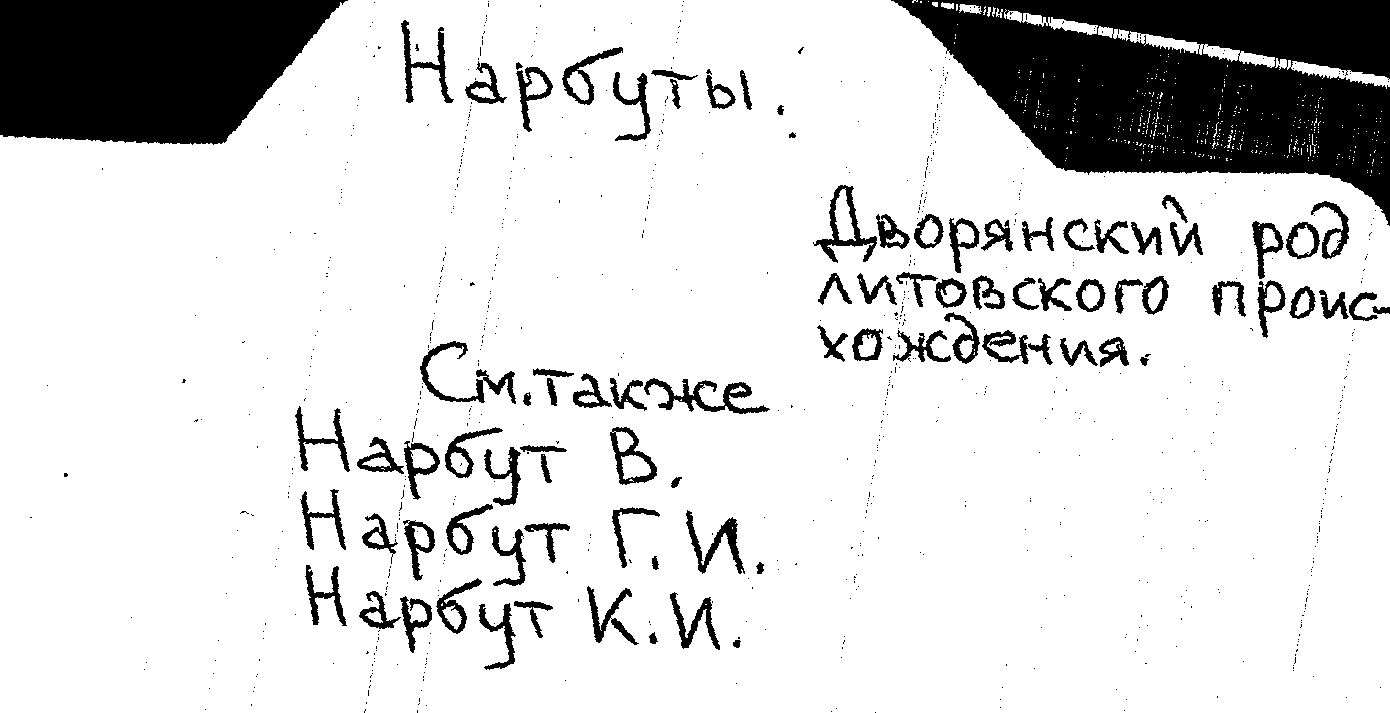 Нарбуты.
Дворянский род
литовского проис-
хождения.
См. также
Нарбут В.
Нарбут Г. И.
Нарбут К. И.